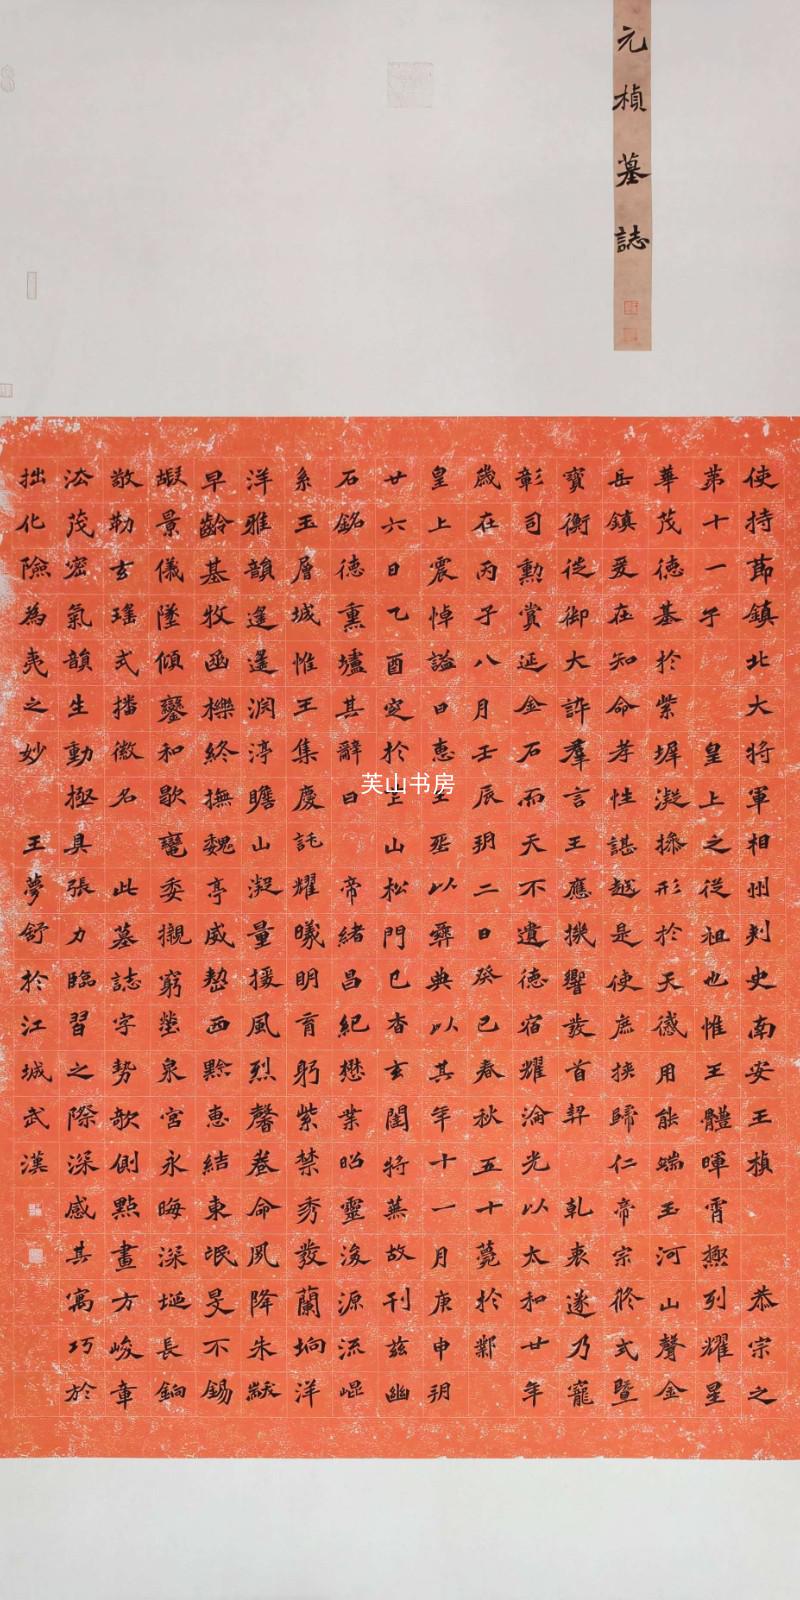 元楨墓誌
使持莭鎮北大將軍相州刾史南安王楨 恭宗之
第十一子 皇上之從祖也惟王體暉霄極列耀星
華茂德基於紫墀凝操形於天感用能端玉河山聲金
岳鎮爰在知命孝性諶越是使庶族歸仁帝宗脩式暨
寶衡從御大訴羣言王應機響發首契 乾衷遂乃寵
彰司勳賞延金石而天不遺德宿耀淪光以太和廿年
歲在丙子八月壬辰玥二日癸巳春秋五十薨於鄴
皇上震悼謚曰惠王塟以彝典以其年十一月庚申玥
廿六日乙酉窆於芒山松門已杳玄闥將蕪故刊茲幽
石銘德熏壚其辭曰 帝緒昌紀懋業昭靈浚源流崐
系玉層城惟王集慶託耀曦明育躬紫禁秀發蘭坰洋
洋雅韻遙遙渕渟瞻山凝量援風烈馨卷命夙降朱黻
早齡基牧函櫟終撫魏亭威整西黔惠結東氓旻不錫
嘏景儀墜傾鑾和歇 委櫬窮塋泉宮永晦深埏長
敬勒玄瑤式播徽名 此墓誌字勢欹側點畫方峻章
法茂密氣韻生動極具張力臨習之際深感其寓巧於
拙化險為夷之妙 王夢舒於江城武漢
芙山书房